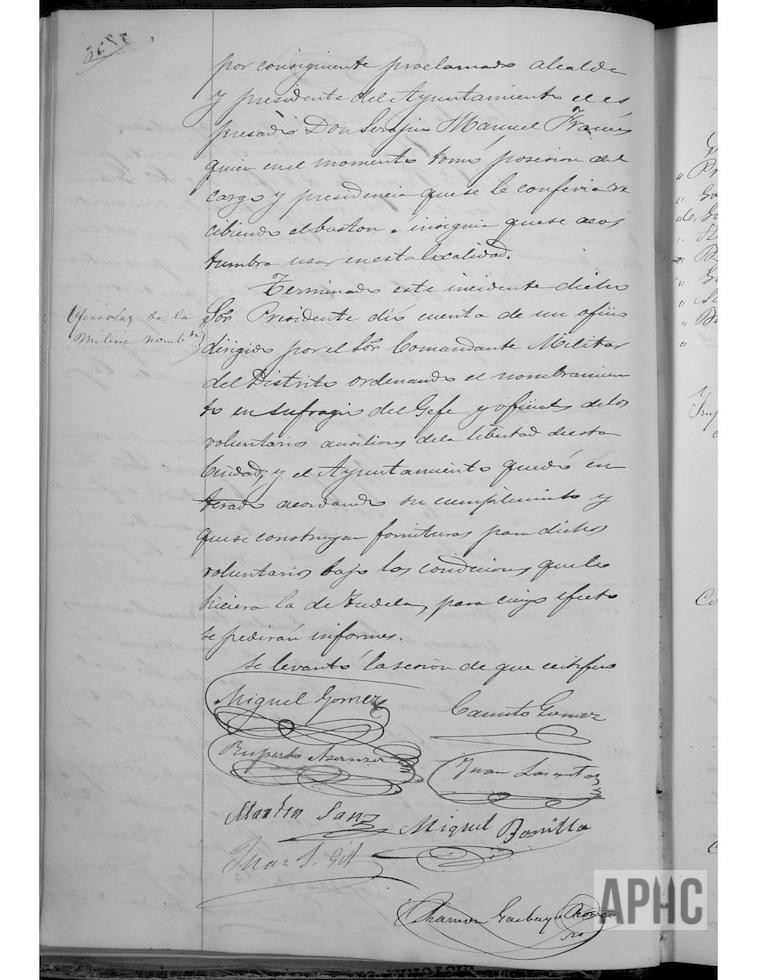 por consiguiente proclamado alcalde
y presidente del Ayuntamiento el es
presado Don Serafin Manuel Francés
quien en el momento tomó posesion del
cargo y presidencia que se le conferia re
cibiendo el baston e insignia que se acos
tumbra usar en esta localidad.
Terminado este incidente dicho
Sor. Presidente dió cuenta de un oficio
de la
Milicia
dirigido por el Sor. Comandante Militar
del Distrito ordenando el nombramien
to en sufragio del Gefe y oficiales de los
voluntarios ausiliares de la libertad de esta
Ciudad; y el Ayuntamiento quedó en
terado acordando su cumplimiento y
que se construyan fornituras para dichos
voluntarios bajo las condiciones que las
hiciera la de Tudela, para cuyo efecto
se pedirán informes.
Se levantó la sesion de que certifico
Miguel Gomez
Canuto Gomez
Ruperto Aznarez
Juan
Martin Sanz
Miguel Bonilla
Juan Gil
APHC